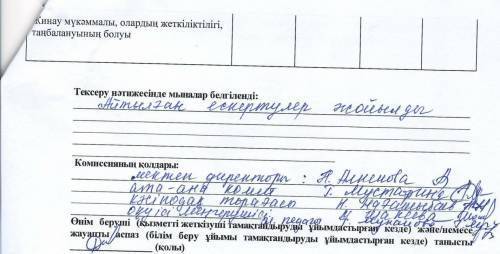 Жинау мүкәммалы, олардың жеткіліктілігі,
таңбалануының болуы
Тексеру нәтижесінде мыналар белгіленді:
Айтылған ескертулер жойылды
Комиссияның қолдары:
мектеп директоры:
ата-ана комит Г. Мустафина
кәсіподақ төрағасы
оқу ісі меңгерушісі
Өнім беруші (қызметті жеткізуші тамақтандыруды ұйымдастырған кезде) және/немесе
жауапты аспаз (білім беру ұйымы тамақтандыруды ұйымдастырған кезде) танысты
(қолы)